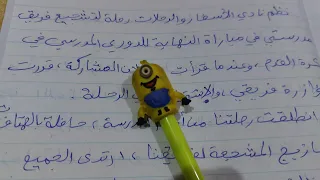 نظم نادي الأسفار والرحلات رحلة لتشجيع فريق
مدرستي في مباراة النهاية للدوري المدرسي في
كرة القدم، وعندما قرأت المشاركة، قررت
فريقي، الرحلة.
انطلقت رحلتنا من حافلة
المشجعة ارتدى الجميع